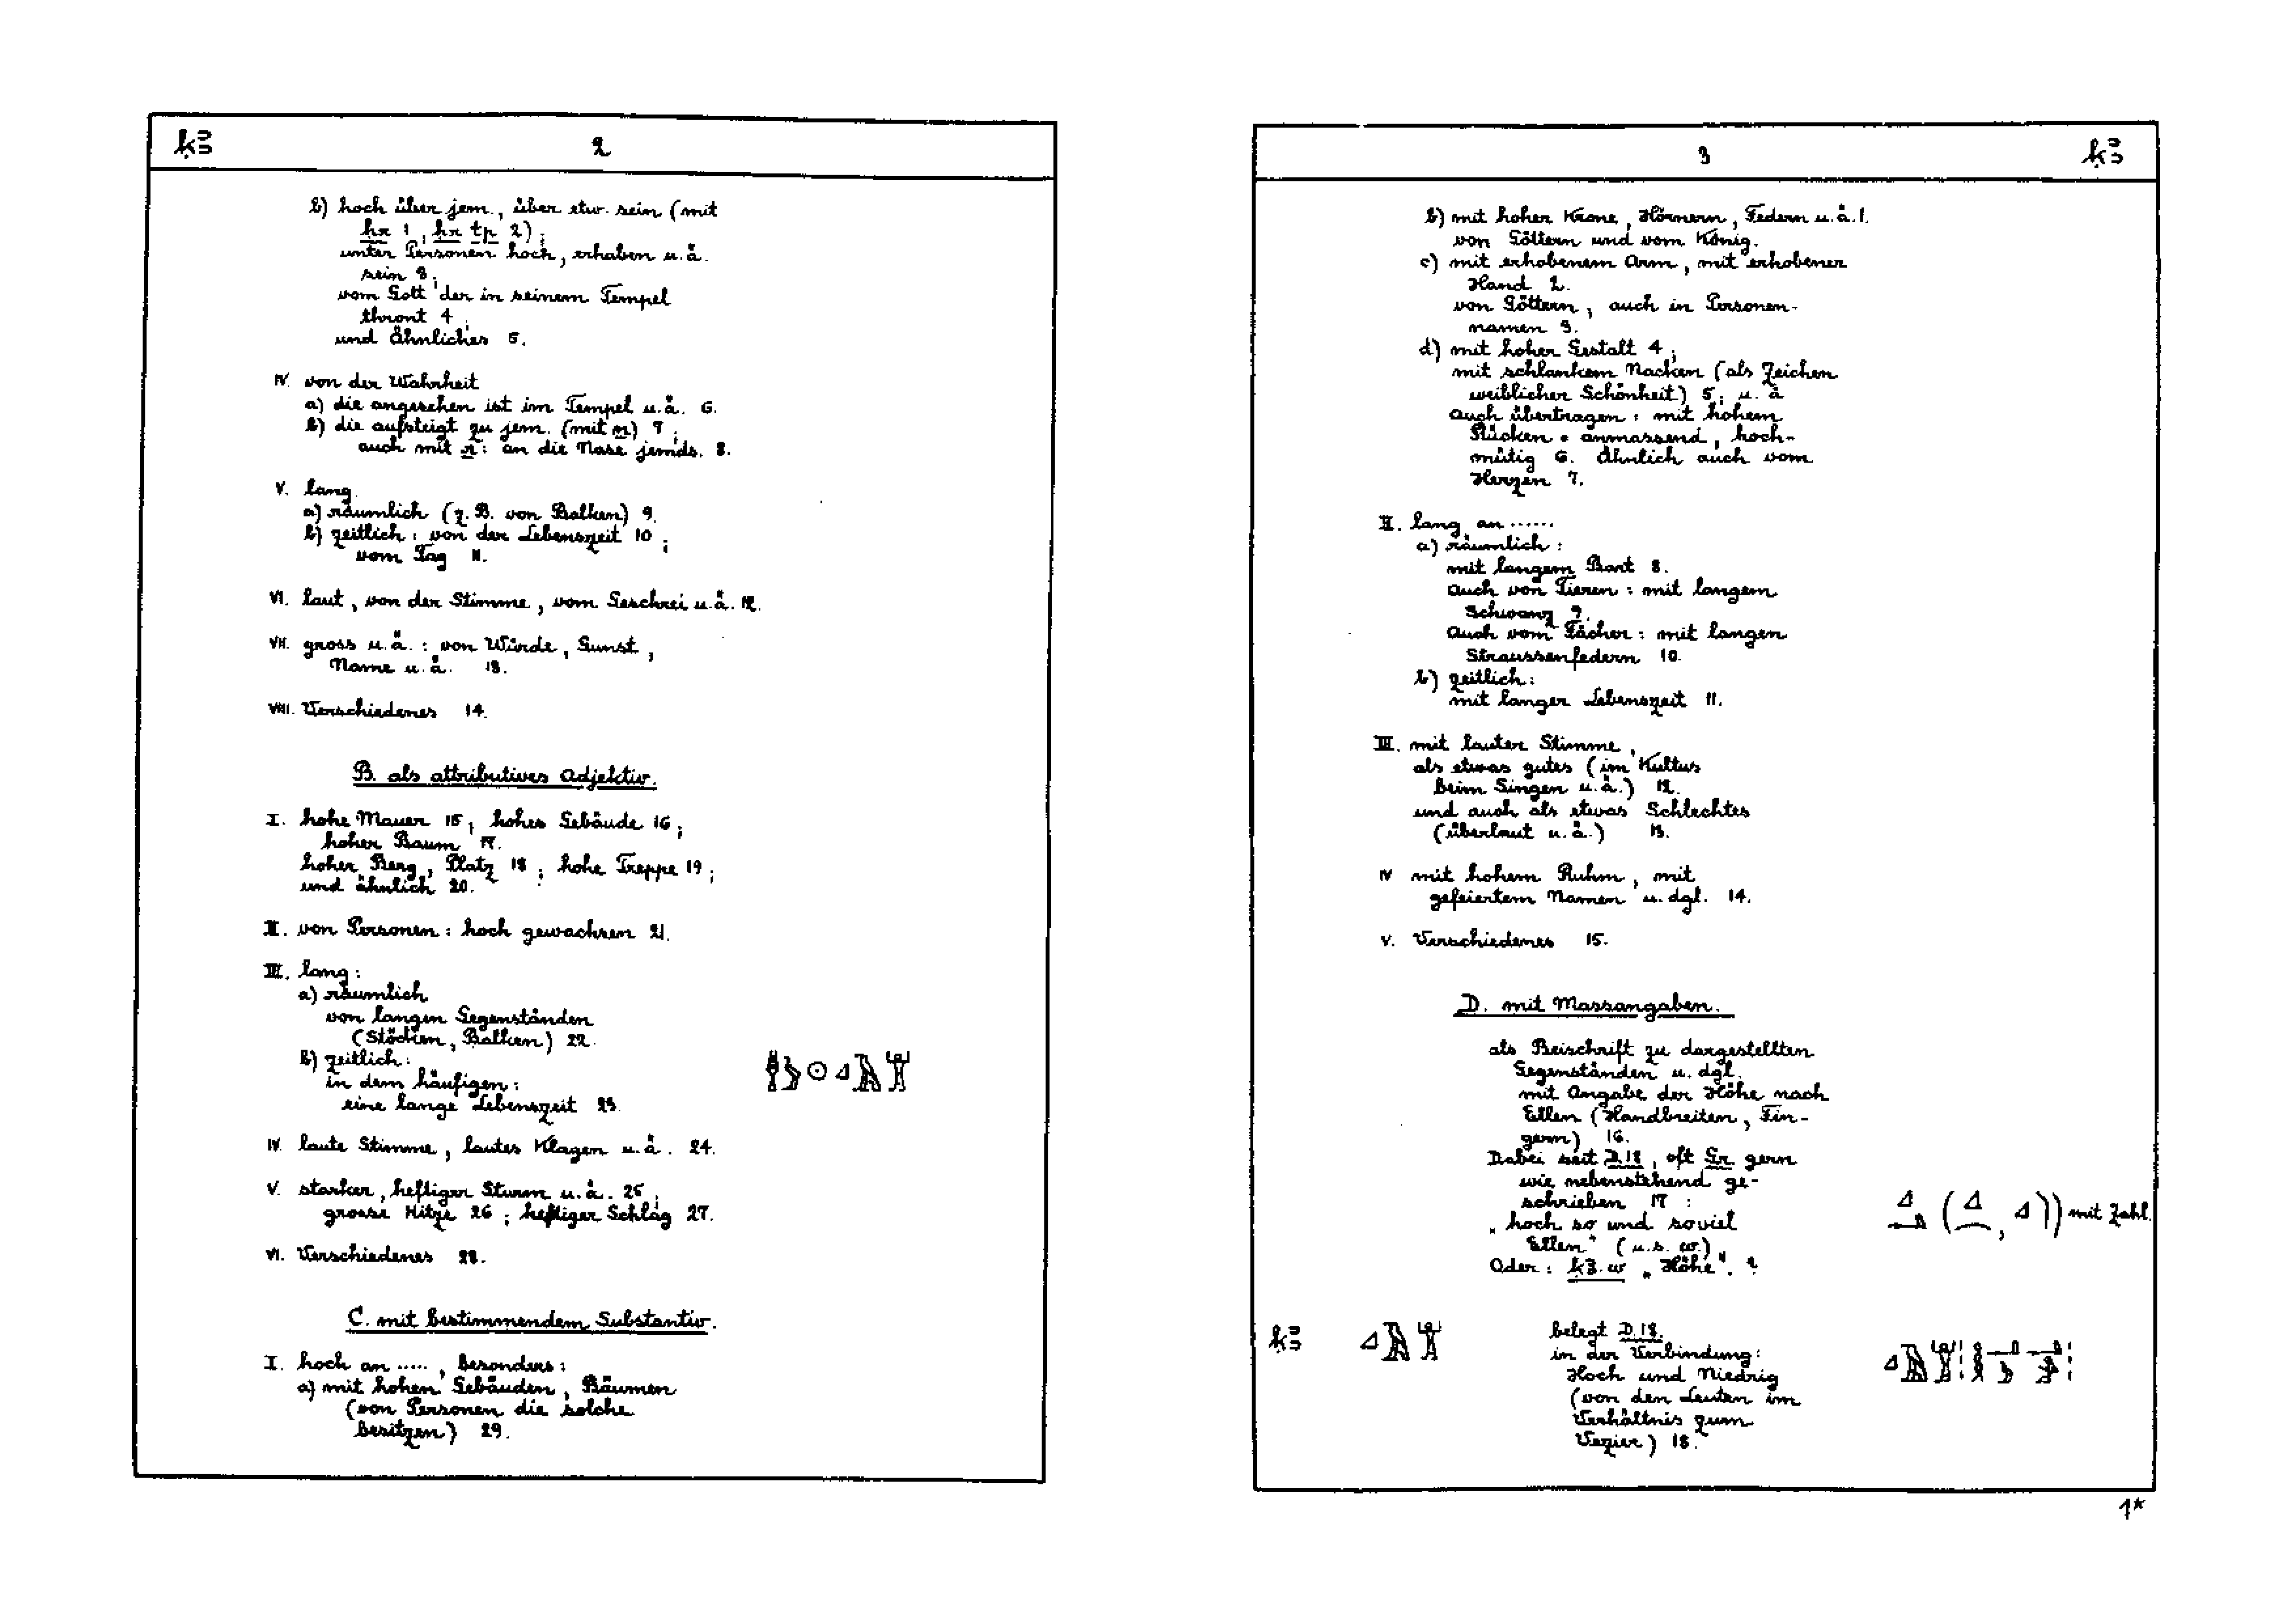 ḳꜣ
2
b) hoch über jem., über etw. sein (mit
ḥr 1, ḥr tp 2);
unter Personen hoch, erhaben u.ä.
sein 3;
vom Gott der in seinem Tempel
thront 4;
und Ähnliches 5.
IV. von der Wahrheit
a) die angesehen ist im Tempel u.ä. 6.
b) die aufsteigt zu jem. (mit n) 7;
auch mit r: an die Nase jemds. 8.
V. lang
a) räumlich (z.B. von Balken) 9.
b) zeitlich: von der Lebenszeit 10;
vom Tag 11.
VI. laut, von der Stimme, vom Geschrei u.ä. 12.
VII. gross u.ä.: von Würde, Gunst,
Name u.ä. 13.
VIII. Verschiedenes 14.
B. als attributives Adjektiv.
I. hohe Mauer 15; hohes Gebäude 16;
hoher Baum 17.
hoher Berg, Platz 18; hohe Treppe 19;
und ähnlich 20.
II. von Personen: hoch gewachsen 21.
III. lang:
a) räumlich
von langen Gegenständen
(Stöcken, Balken) 22.
b) zeitlich:
in dem häufigen:
eine lange Lebenszeit 23.
IV. laute Stimme, lautes Klagen u.ä. 24.
V. starker, heftiger Sturm u.ä. 25;
grosse Hitze 26; heftiger Schlag 27.
VI. Verschiedenes 28.
C. mit bestimmendem Substantiv.
I. hoch an ....., besonders:
a) mit hohen Gebäuden, Bäumen
(von Personen die solche
besitzen) 29.
3
ḳꜣ
b) mit hoher Krone, Hörnern, Federn u.ä. 1.
von Göttern und vom König.
c) mit erhobenem Arm, mit erhobener
Hand 2.
von Göttern, auch in Personen-
namen 3.
d) mit hoher Gestalt 4;
mit schlankem Nacken (als Zeichen
weiblicher Schönheit) 5; u.ä
auch übertragen: mit hohem
Rücken = anmassend, hoch-
mütig 6. Ähnlich auch vom
Herzen 7.
II. lang an ......
a) räumlich:
mit langem Bart 8.
auch von Tieren: mit langem
Schwanz 9.
auch vom Fächer: mit langen
Straussenfedern 10.
b) zeitlich:
mit langer Lebenszeit 11.
III. mit lauter Stimme,
als etwas gutes (im Kultus
beim Singen u.ä.) 12.
und auch als etwas Schlechtes
(überlaut u.ä.) 13.
IV mit hohem Ruhm, mit
gefeiertem Namen u. dgl. 14.
V. Verschiedenes 15.
D. mit Massangaben.
als Beischrift zu dargestellten
Gegenständen u. dgl.
mit Angabe der Höhe nach
Ellen (Handbreiten, Fin-
gern) 16.
Dabei seit D.18, oft Gr. gern
wie nebenstehend ge-
schrieben 17:
„hoch so und soviel
Ellen" (u.s.w.)
mit Zahl.
Oder: ḳꜣ.w „Höhe". ?
ḳꜣ
belegt D.18.
in der Verbindung:
Hoch und Niedrig
(von den Leuten im
Verhältnis zum
Vezier) 18.
1*